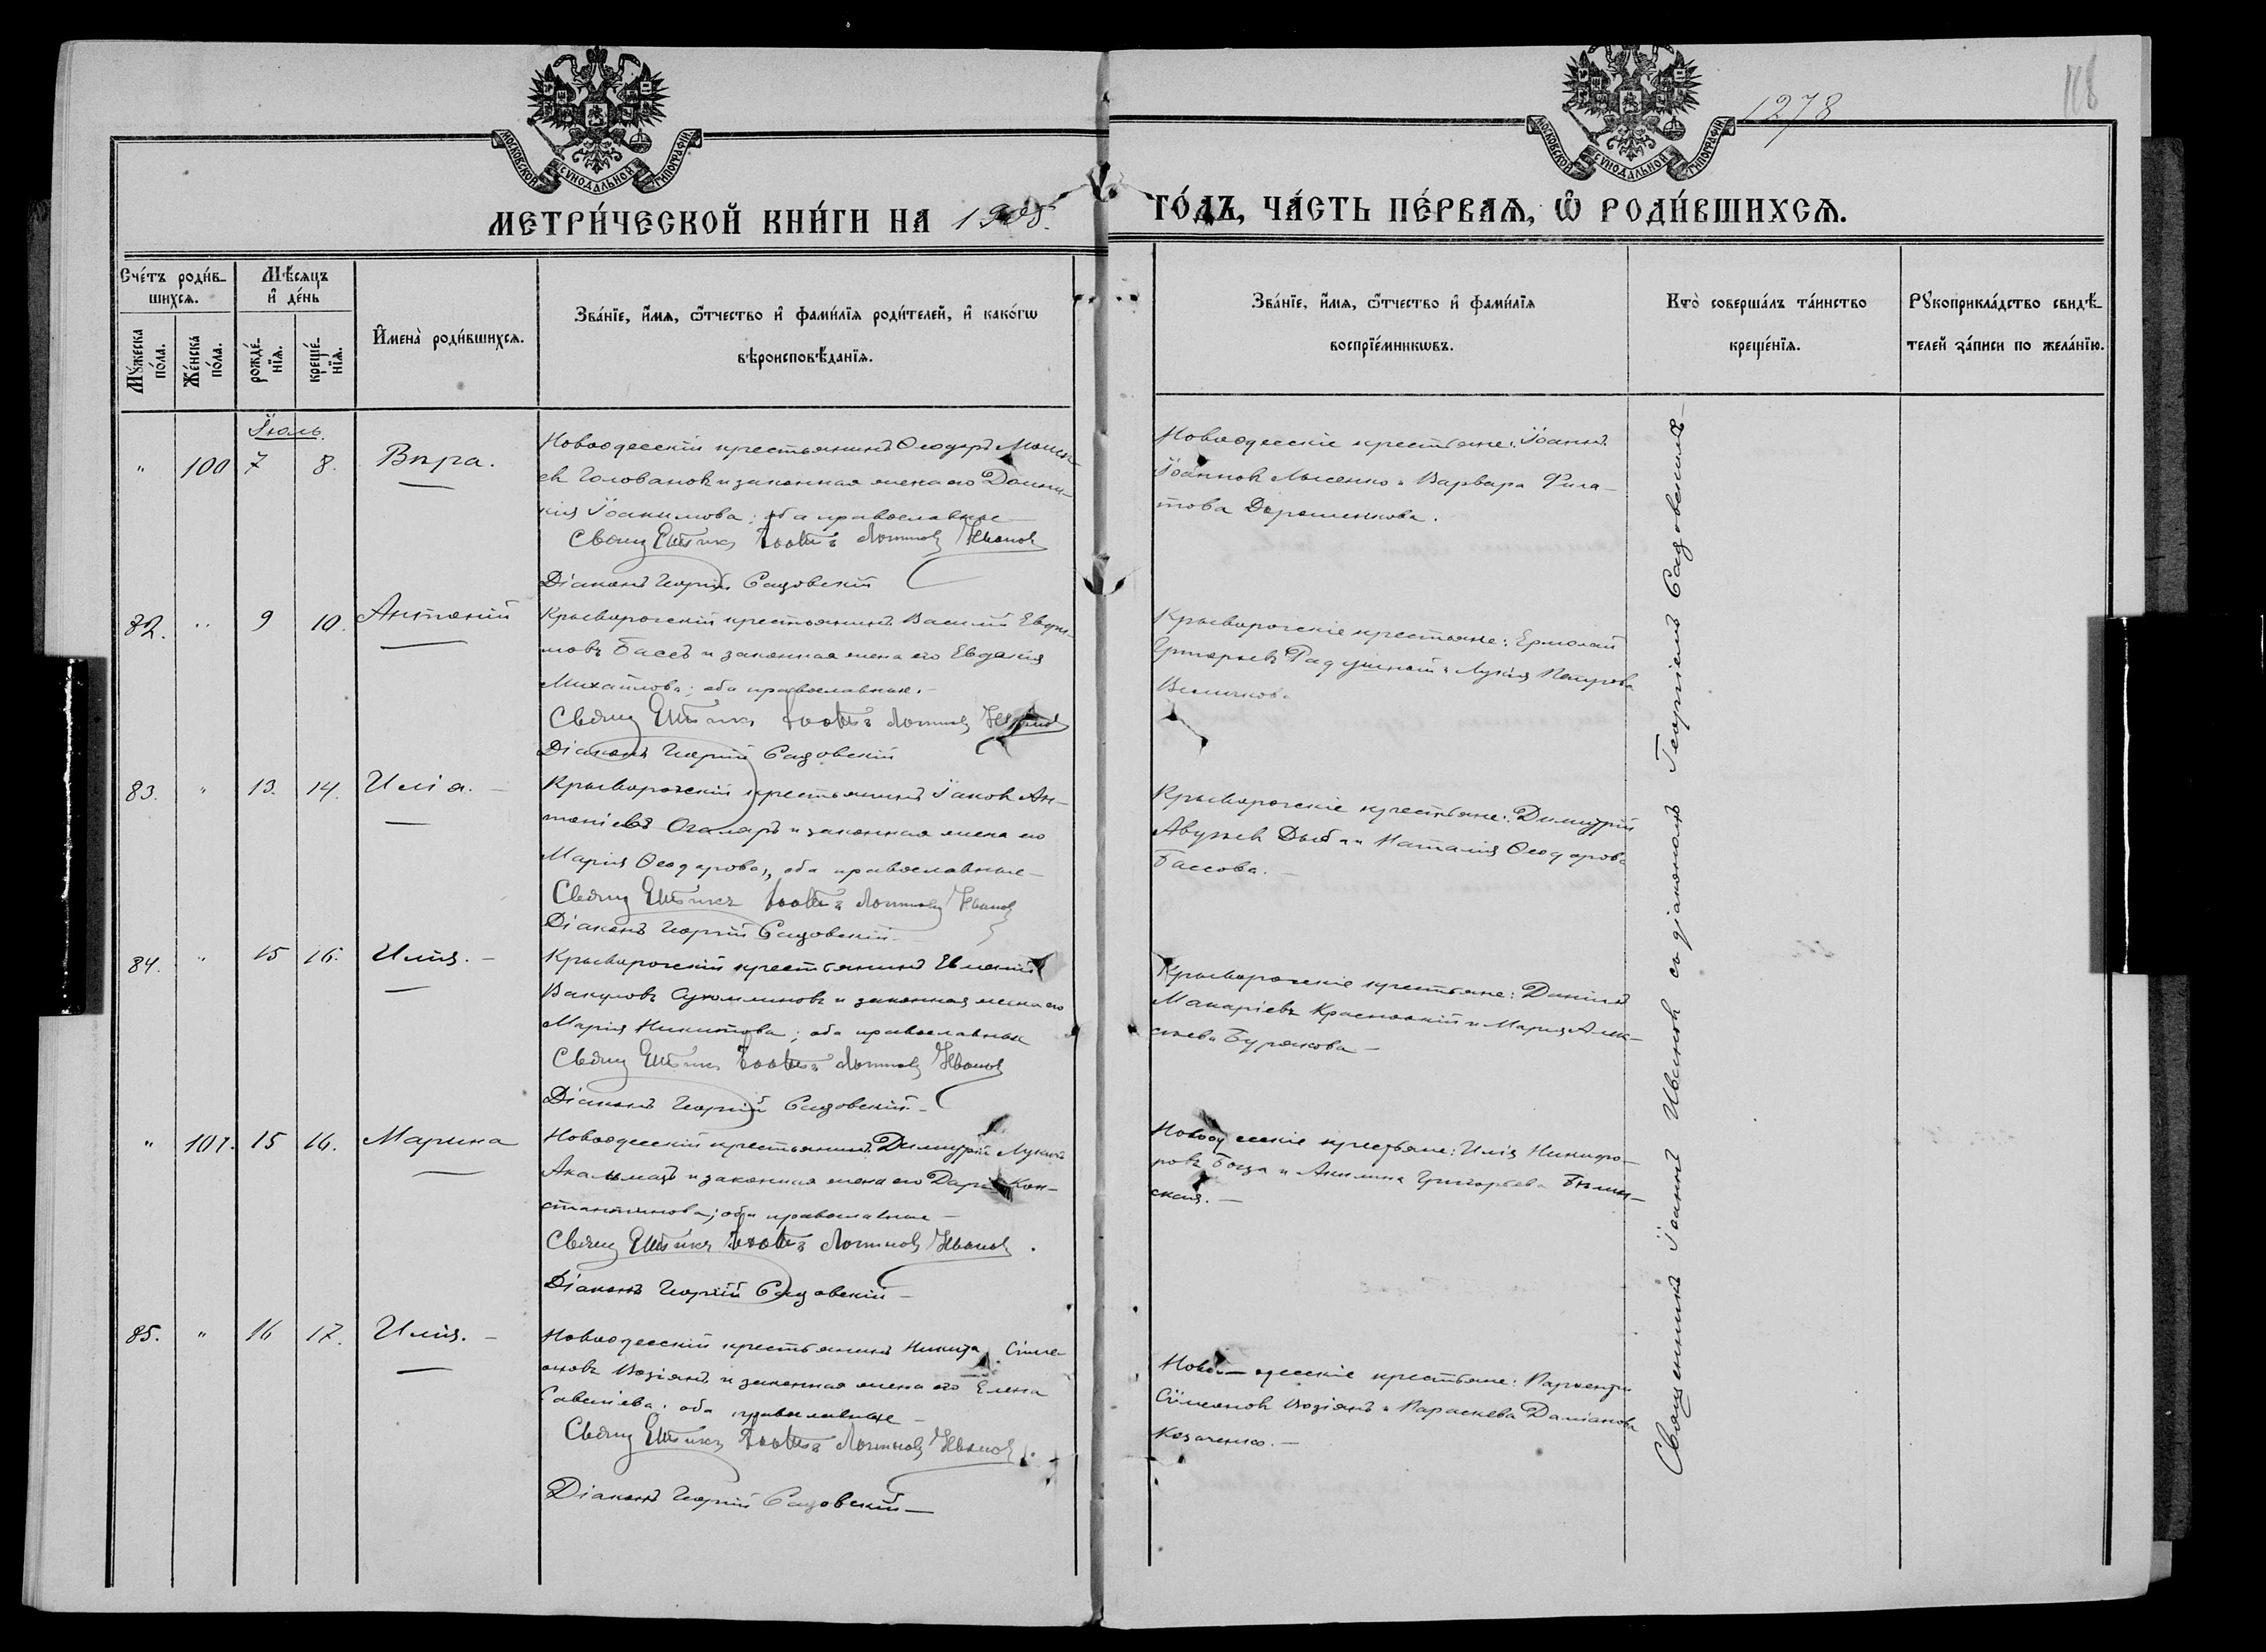 1278
118
МОСКОВСКОЙ СѴНОДАЛЬНОЙ ТИПОГРАФІИ
МОСКОВСКОЙ СѴНОДАЛЬНОЙ ТИПОГРАФІИ
МЕТРИ́ЧЕСКОЙ КНИ́ГИ НА 1908. ГО́ДЪ, ЧА́СТЬ ПЕ́РВАѦ, Ѽ РОДИ́ВШИХСѦ.
Сче́тъ роди́в-
шихсѧ.
Мꙋ́жеска по́ла.
Же́нска по́ла.
Мѣ́сѧцъ и҆ де́нь
рожде́-
нїѧ.
креще́-
нїѧ.
И҆мена̀ роди́вшихсѧ.
Зва́нїе, и҆́мѧ, ѻ҆́тчество и҆ фами́лїѧ роди́телей, и҆ како́гѡ
вѣроисповѣ́данїѧ.
Зва́нїе, и҆́мѧ, ѻ҆́тчество и҆ фами́лїѧ
воспрїе́мникѡвъ.
Кто̀ соверша́лъ та́инство
креще́нїѧ.
Рꙋкоприкла́дство свидѣ́-
телей за́писи по жела́нїю.
Іюль
" 100 7 8. Вѣра.
Новоодесскій крестьянинъ Ѳеодоръ Моисе-
евъ Головановъ и законная жена его Домни-
кія Іоакимова; оба православные
Священникъ Іоаннъ Логиновъ Ивановъ
Діаконъ Георгій Садовскій
Новоодесскіе крестьяне: Іоаннъ
Іоанновъ Лысенко и Варвара Фила-
това Дорошенкова.
82. " 9 10. Антоній
Криворожскій крестьянинъ Василій Евфи-
мовъ Бассъ и законная жена его Евдокія
Михайлова; оба православные.
Священникъ Іоаннъ Логиновъ Ивановъ
Діаконъ Георгій Садовскій
Криворожскіе крестьяне: Ермолай
Григорьевъ Радушный и Лукія Петрова
Величкова
83. " 13. 14. Иліа.
Криворожскій крестьянинъ Іаковъ Ан-
тоніевъ и законная жена его
Марія Ѳеодорова, оба православные
Священникъ Іоаннъ Логиновъ Ивановъ
Діаконъ Георгій Садовскій
Криворожскіе крестьяне: Димитрій
Дыба и Наталія Ѳеодорова
Бассова.
84. " 15 16. Илія.
Криворожскій крестьянинъ Евменій
Вакуловъ Сухомлиновъ и законная жена его
Марія Никитова; оба православные
Священникъ Іоаннъ Логиновъ Ивановъ
Діаконъ Георгій Садовскій
Криворожскіе крестьяне: Даніилъ
Макаріевъ Красновскій и Марія Алек-
сѣева Бурякова
" 101. 15 16. Марина
Новоодесскій крестьянинъ Димитрій Лукинъ
и законная жена его Дарія Кон-
стантинова; оба православные
Священникъ Іоаннъ Логиновъ Ивановъ.
Діаконъ Георгій Садовскій
Новоодесскіе крестьяне: Илія Никифо-
ровъ и Акилина Григорьева Бѣлин-
ская.
85. " 16 17. Илія.
Новоодесскій крестьянинъ Никита Сѵме-
оновъ Возіянъ и законная жена его Елена
Савеліева; оба православные
Священникъ Іоаннъ Логиновъ Ивановъ.
Діаконъ Георгій Садовскій
Ново-одесскіе крестьяне: Парѳентій
Сѵмеоновъ Возіянъ и Параскева Даміанова
Козаченко.
Священникъ Іоаннъ Ивановъ съ діакономъ Георгіемъ Садовскимъ